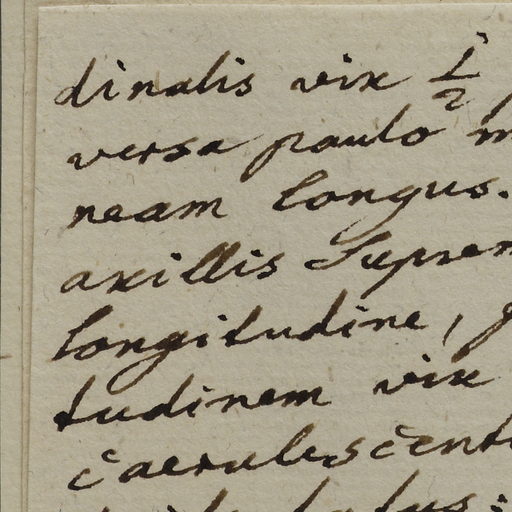 dinalis vix 1/2
versa paulo m
neam longus.
axillis Suprem
longitudine,
tudinem vix
caerulescenti
latus: